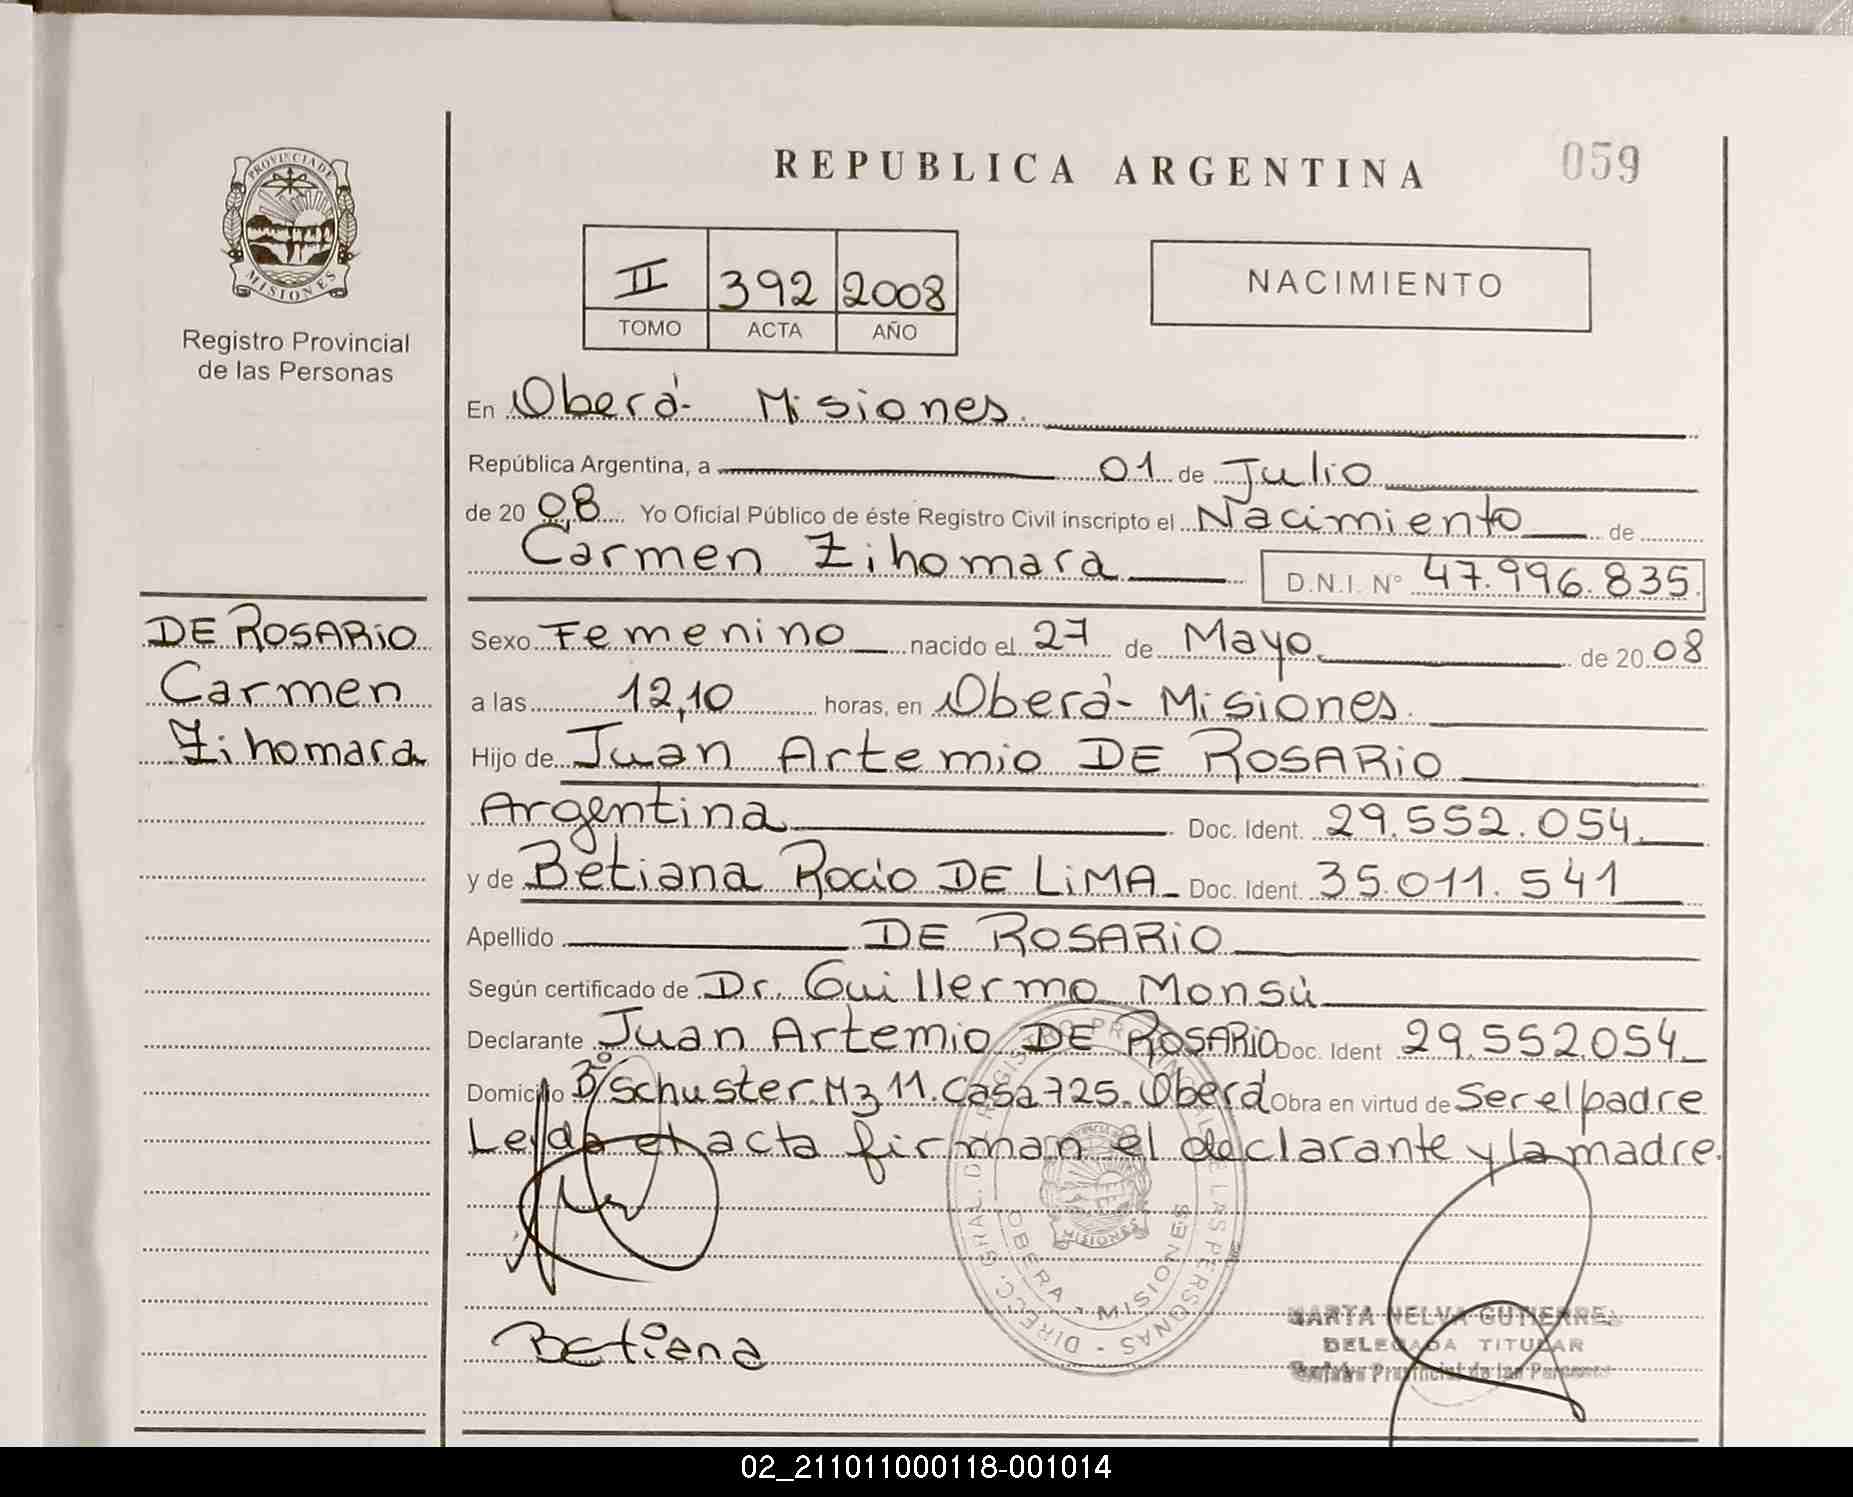 REPUBLICA ARGENTINA
059
PROVINCIA DE
MISIONES
Registro Provincial
de las Personas
II 392 2008
TOMO ACTA AÑO
NACIMIENTO
En Oberá- Misiones.
República Argentina, a 01 de Julio
de 2008 Yo Oficial Público de éste Registro Civil inscripto el Nacimiento de
Carmen Zihomara D.N.I. Nº 47.996.835.
DE ROSARiO
Carmen
Zihomara
Sexo Femenino nacido el 27 de Mayo de 2008
a las 12,10 horas, en Oberá- Misiones.
Hijo de Juan Artemio DE ROSARiO
Argentina Doc. Ident. 29.552.054.
y de Betiana Rocio DE LiMA Doc. Ident. 35.011.541
Apellido DE ROSARiO
Según certificado de Dr. Guillermo Monsú
Declarante Juan Artemio DE ROSARiO Doc. Ident 29.552.054
Domicilio Bº Schuster. Mz 11. Casa 725. Oberá Obra en virtud de Ser el padre
Leida el acta firman el declarante y la madre.
DIRECC. GRAL. DEL REGISTRO PROVINCIAL DE LAS PERSONAS
OBERA - MISIONES
MISIONES
Betiana
MARTA NELVA GUTIERREZ
DELEGADA TITULAR
Registro Provincial de las Personas
02_211011000118-001014